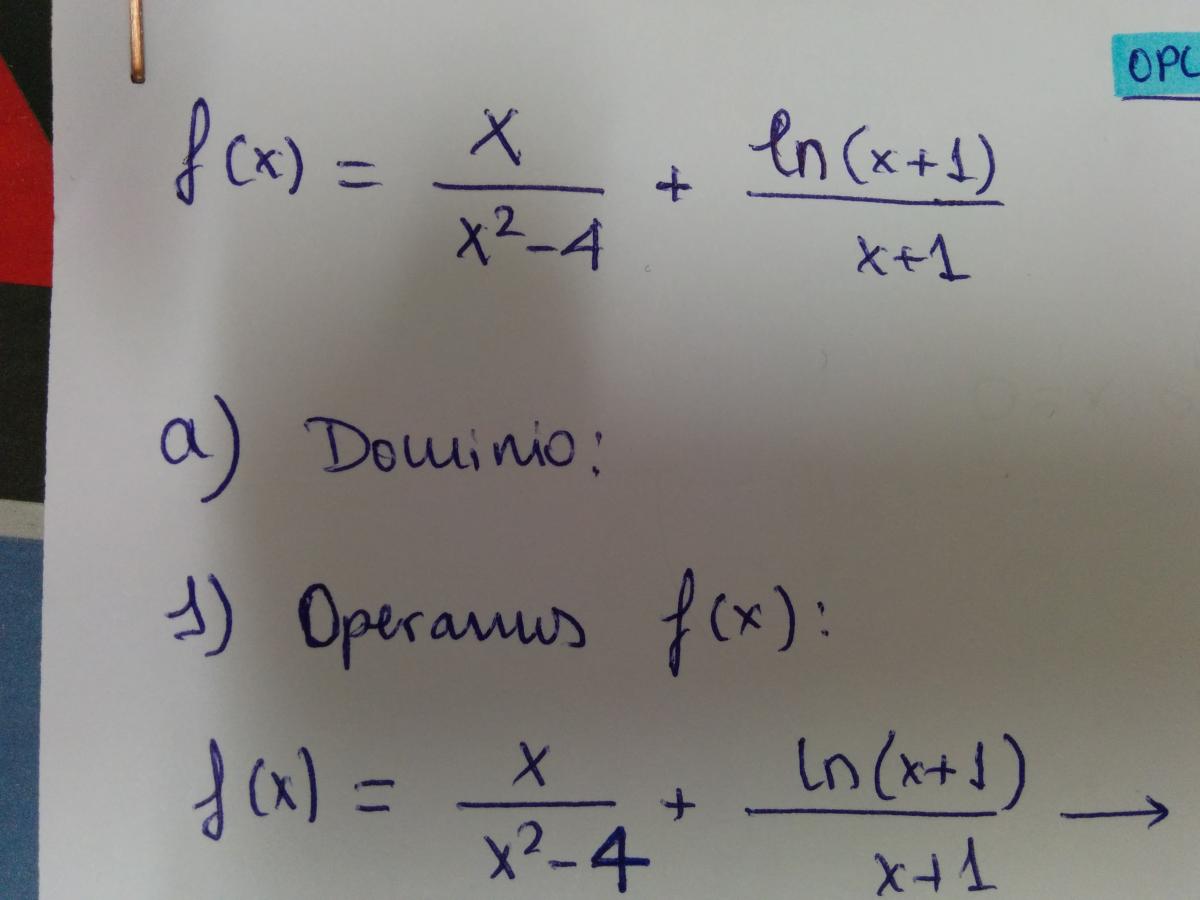 OPC
f(x) = x / (x² - 4) + ln(x+1) / (x+1)
a) Dominio:
1) Operamos f(x):
f(x) = x / (x² - 4) + ln(x+1) / (x+1) →